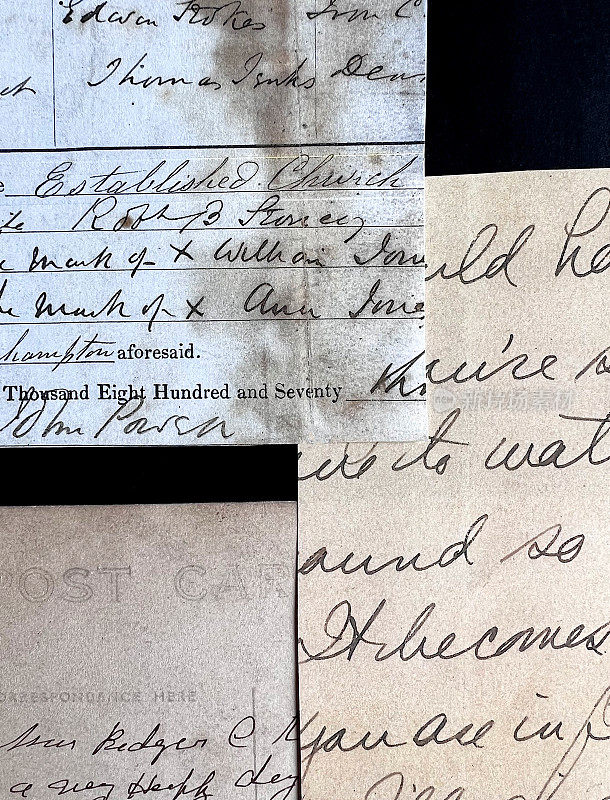 Edwin Stokes Iron C
Thomas Jenks Dea
Established Church
Robt B Stoney
mark of X William Jon
he mark of X Ann Jone
hampton aforesaid.
Thousand Eight Hundred and Seventy thr
John Power
uld ha
u're s
ve to wat
ound so
It becomes
you are in
POST CAR
CORRESPONDENCE HERE
Badger C
a very Happy day